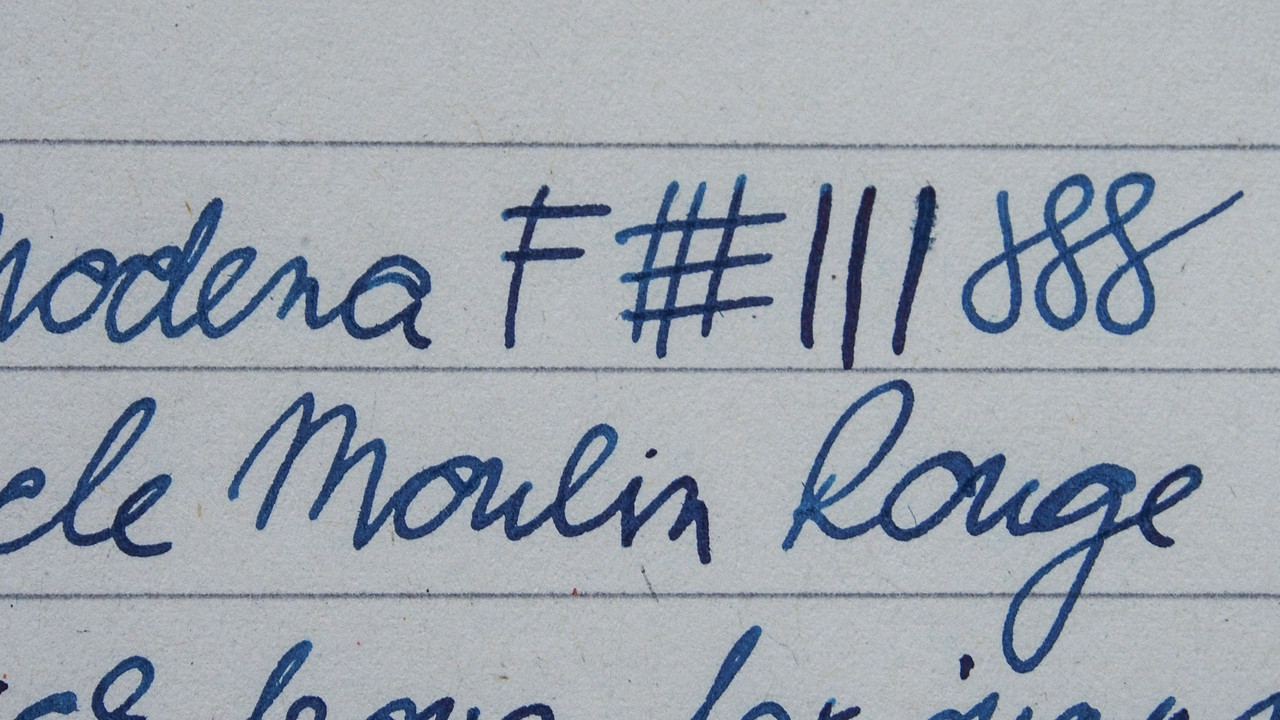 Modena F # |||
cle Moulin Rouge